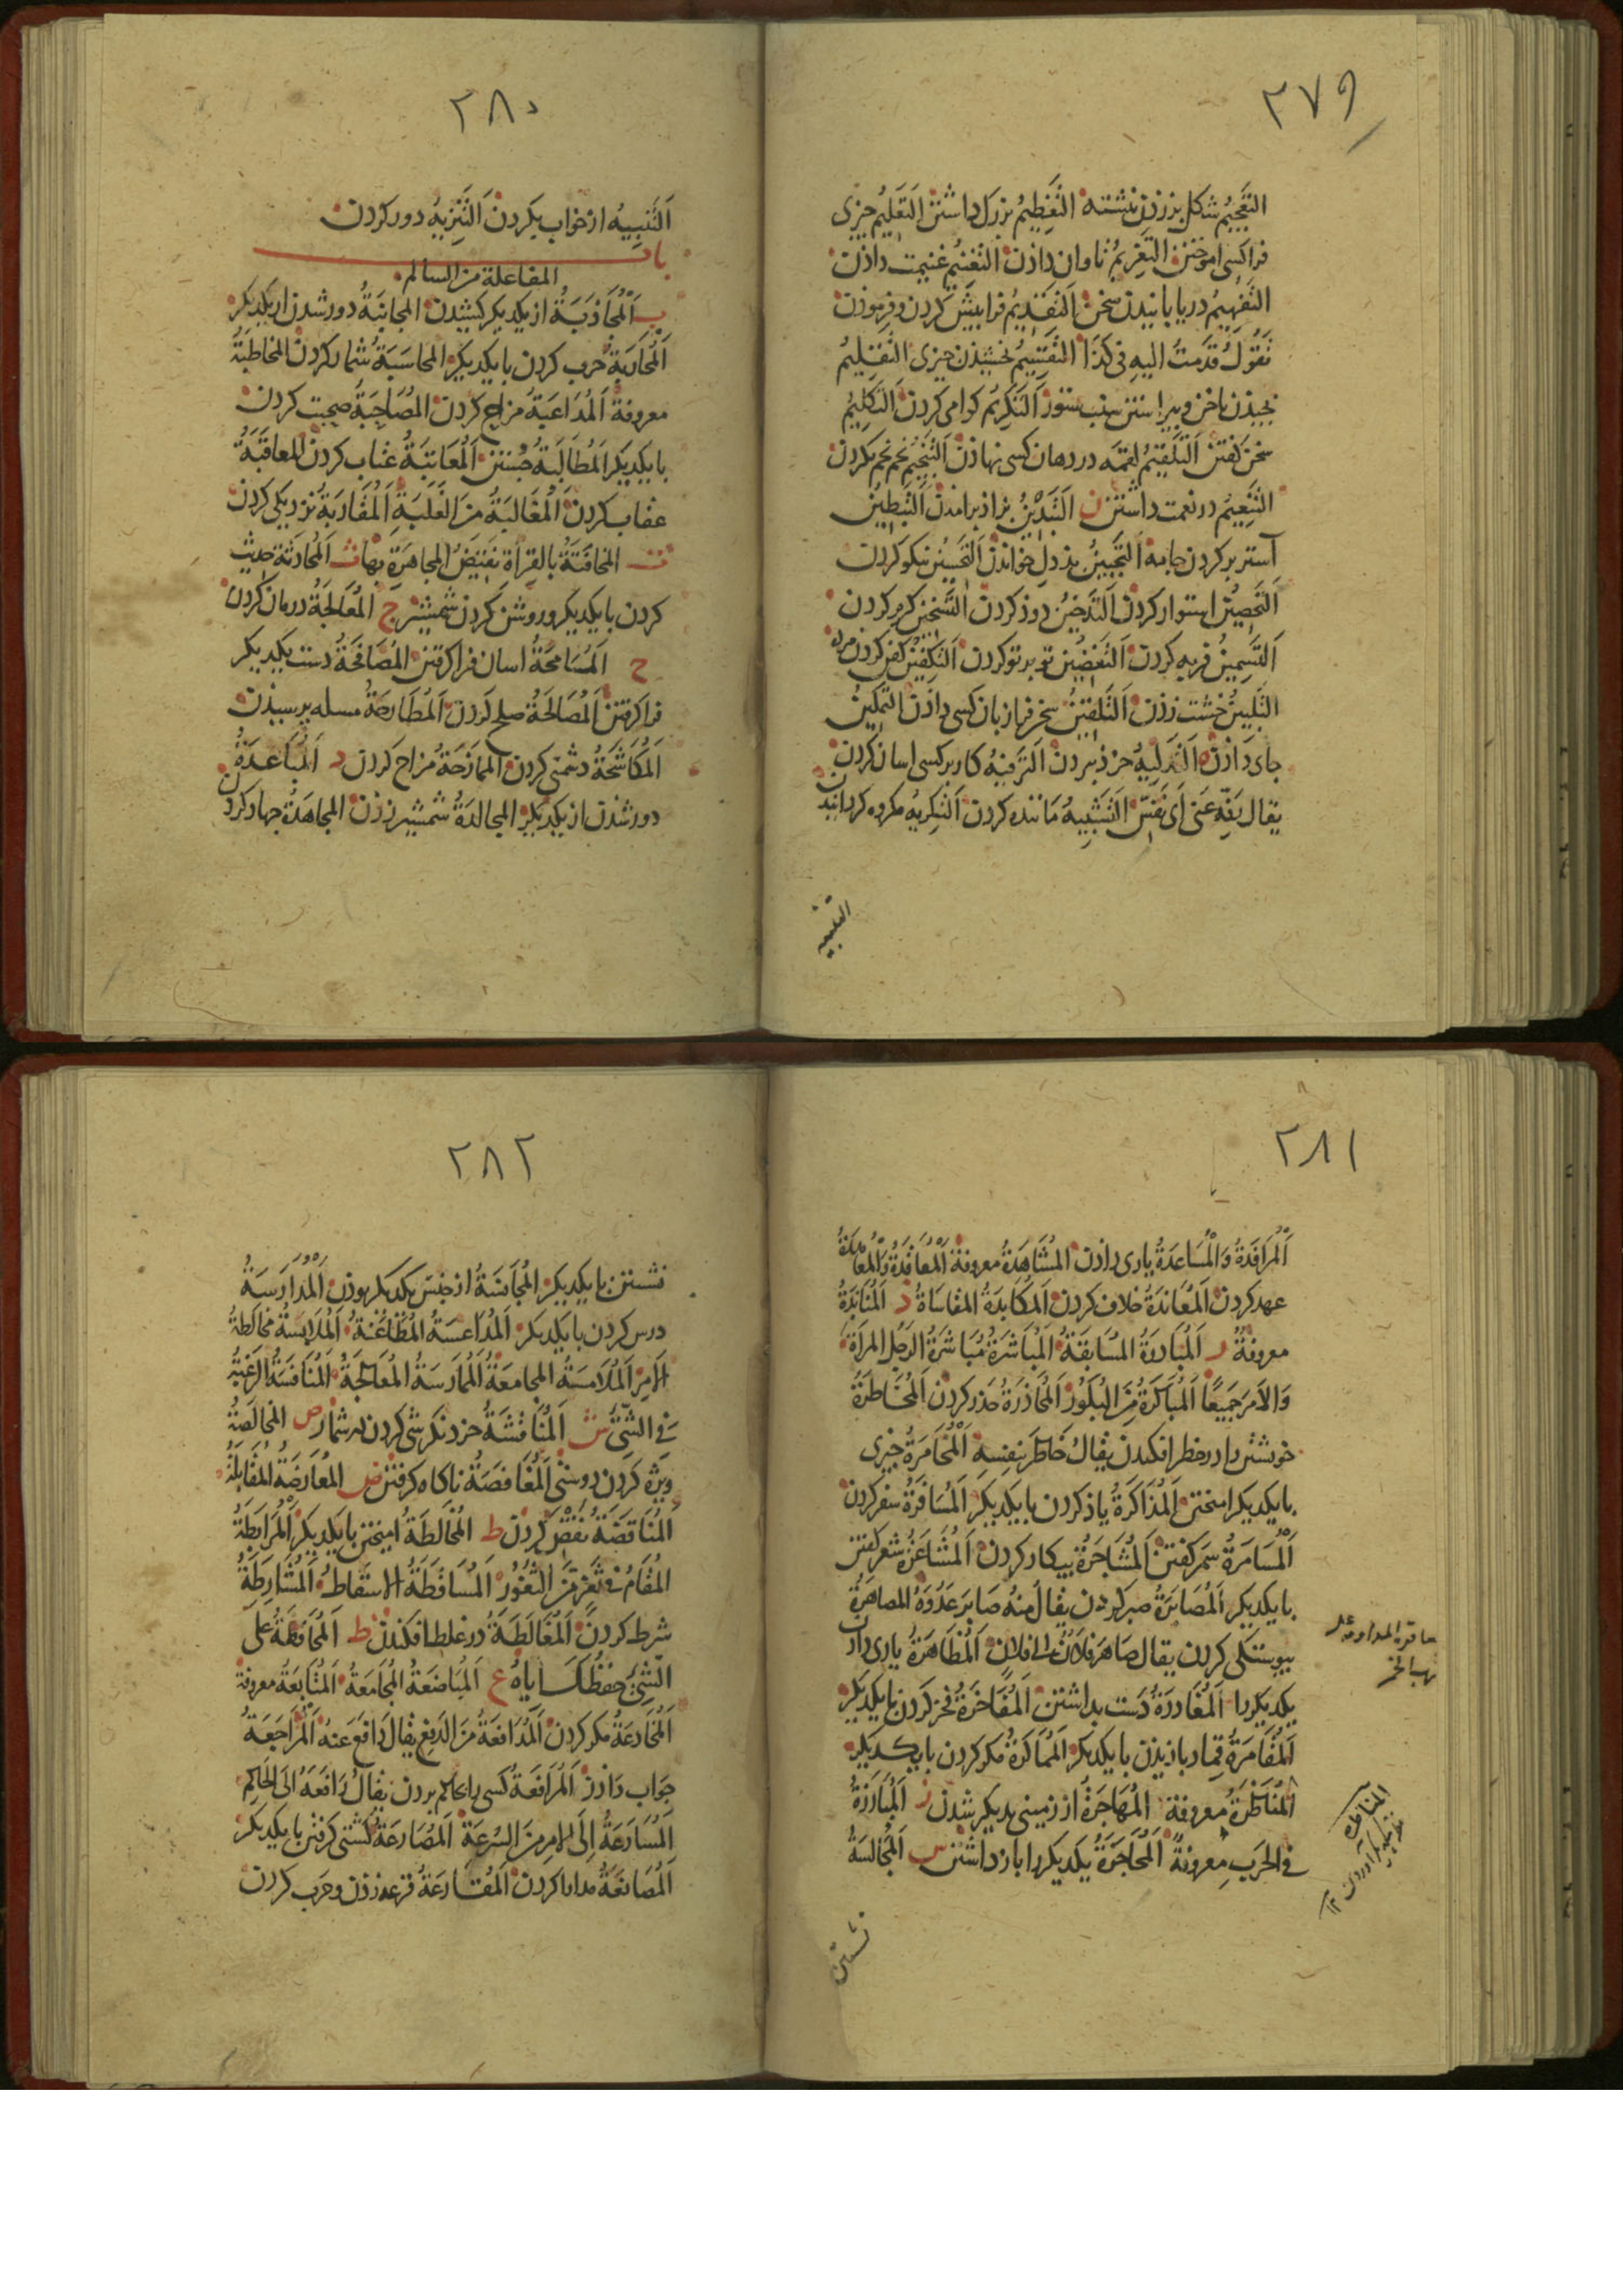 ٢٧٩
التعجيم شكل بر زدن نبشته التعظيم بزرك داشتن التعليم جيزى
فرا كسى اموختن التغريم تاوان داذن التغنيم غنيمت داذن
التفهيم دريابانيدن سخن التقديم فرا پيش كردن وفرموذن
تقول قدمت اليه فى كذا التقسيم بخشيذن جيزى التقليم
بجيذن ناخن وپيراستن سنب ستور التكريم كرامى كردن التكليم
سخن كفتن التلقيم لقمه در دهان كسى نهاذن التنجيم نجم نجم بكردن
التنعيم در نعمت داشتن ن التبدين بزاذ برامدن التبطين
آستر بر كردن جامه التجبين بذدل خواندن التحسين نيكو كردن
التحصين استوار كردن التدخين دوذ كردن التسخين كرم كردن
التسمين فربه كردن التغضين تو بر تو كردن التكفين كفن كردن مرده
التلبين خشت زذن التلقين سخن فرا زبان كسى داذن التمكين
جاى داذن ه التدليه خرذ ببردن الترفيه كار بر كسى اسان كردن
يقال رفه عنى اى نفس التشبيه ماننده كردن التكريه مكروه كردانيدن
التنبيه
٢٨٠
التنبيه از خواب بكردن التنزيه دور كردن
باب
المفاعلة من السالم
ب المجاذبة از يكديكر كشيدن المجانبة دور شدن از يكديكر
المحاربة حرب كردن با يكديكر المحاسبة شمار كردن المخاطبة
معروفة المداعبة مزاح كردن المصاحبة صحبت كردن
با يكديكر المطالبة جستن المعاتبة عتاب كردن المعاقبة
عقاب كردن المغالبة من الغلبة المقاربة نزديكى كردن
ت المخافتة بالقراة نقيض المجاهرة بها ث المحادثة حديث
كردن با يكديكر وروشن كردن شمشير ج المعالجة درمان كردن
ح المسامحة اسان فرا كرفتن المصافحة دست يكديكر
فرا كرفتن المصالحة صلح كردن المطارحة مسله پرسيذن
المكاشحة دشمنى كردن الممازحة مزاح كردن د المباعدة
دور شدن از يكديكر المجالدة شمشير زذن المجاهدة جهاد كردن
٢٨١
المرافدة والمساعدة يارى داذن المشاهدة معروفة المعاقدة والمعاهدة
عهد كردن المعاندة خلاف كردن المكابدة المقاساة ذ المنابذة
معروفة ر المبادرة المسابقة المباشرة مباشرة الرجل المراة
والامر جميعا المباكرة من البكور المحاذرة حذر كردن المخاطرة
خويشتن را در خطر افكندن يقال خاطر بنفسه المخامرة جيزى
با يكديكر اميختن المذاكرة ياذ كردن با يكديكر المسافرة سفر كردن
المسامرة سمر كفتن المشاجرة پيكار كردن المشاعرة شعر كفتن
با يكديكر المصابرة صبر كردن يقال منه صابر عدوه المصاهرة
پيوستكى كردن يقال صاهر فلان الى فلان المظاهرة يارى دادن
يكديكر را المغادرة دست بداشتن المفاخرة فخر كردن با يكديكر
المقامرة قمار بازيذن با يكديكر المماكرة مكر كردن با يكديكر
المناظرة معروفة المهاجرة از زمينى بديكر شدن ز المبارزة
فى الحرب معروفة المحاجزة يكديكر را باز داشتن س المجالسة
عاقره المداومة على
شرب الخمر
المناظرة
نظير يكديكر آوردن ١٢
نشستن
٢٨٢
نشستن با يكديكر المجانسة از جنس يكديكر بوذن المدارسة
درس كردن با يكديكر المداعسة المطاعنة الملابسة مخالطة
الامر الملامسة المجامعة الممارسة المعالجة المنافسة الرغبة
فى الشئ ش المناقشة خرد نكرشى كردن در شمار ص المخالصة
ويژه كردن دوستى المغافصة ناكاه كرفتن ض المعارضة المقابلة
المناقضة نقض كردن ط المخالطة اميختن با يكديكر المرابطة
المقام فى ثغر من الثغور المساقطة الاسقاط المشارطة
شرط كردن المغالطة در غلط افكندن ظ المحافظة على
الشئ حفظك اياه ع المباضعة المجامعة المتابعة معروفة
المخادعة مكر كردن المدافعة من الدفع يقال دافع عنه المراجعة
جواب داذن المرافعة كسى را بحاكم بردن يقال رافعه الى الحاكم
المسارعة الى الامر من السرعة المصارعة كشتى كرفتن با يكديكر
المصانعة مدارا كردن المقارعة قرعه زذن وحرب كردن